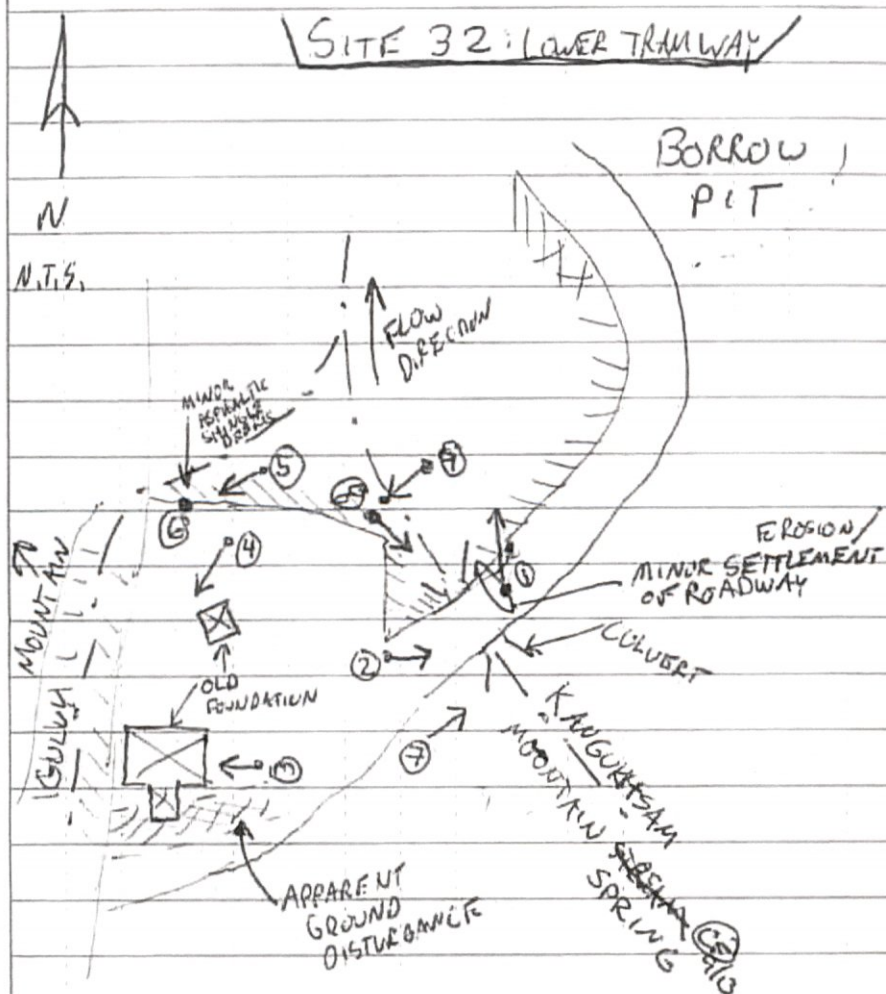 SITE 32: LOWER TRAMWAY
BORROW
PIT
N
N.T.S.
FLOW
DIRECTION
MINOR
ASPHALTIC
SHINGLE
DEBRIS
5
6
4
1
EROSION/
MINOR SETTLEMENT
OF ROADWAY
CULVERT
2
MOUNTAIN
GULLY
OLD
FOUNDATION
3
7
KANGUKHSAM
MOUNTAIN
SPRING
APPARENT
GROUND
DISTURBANCE